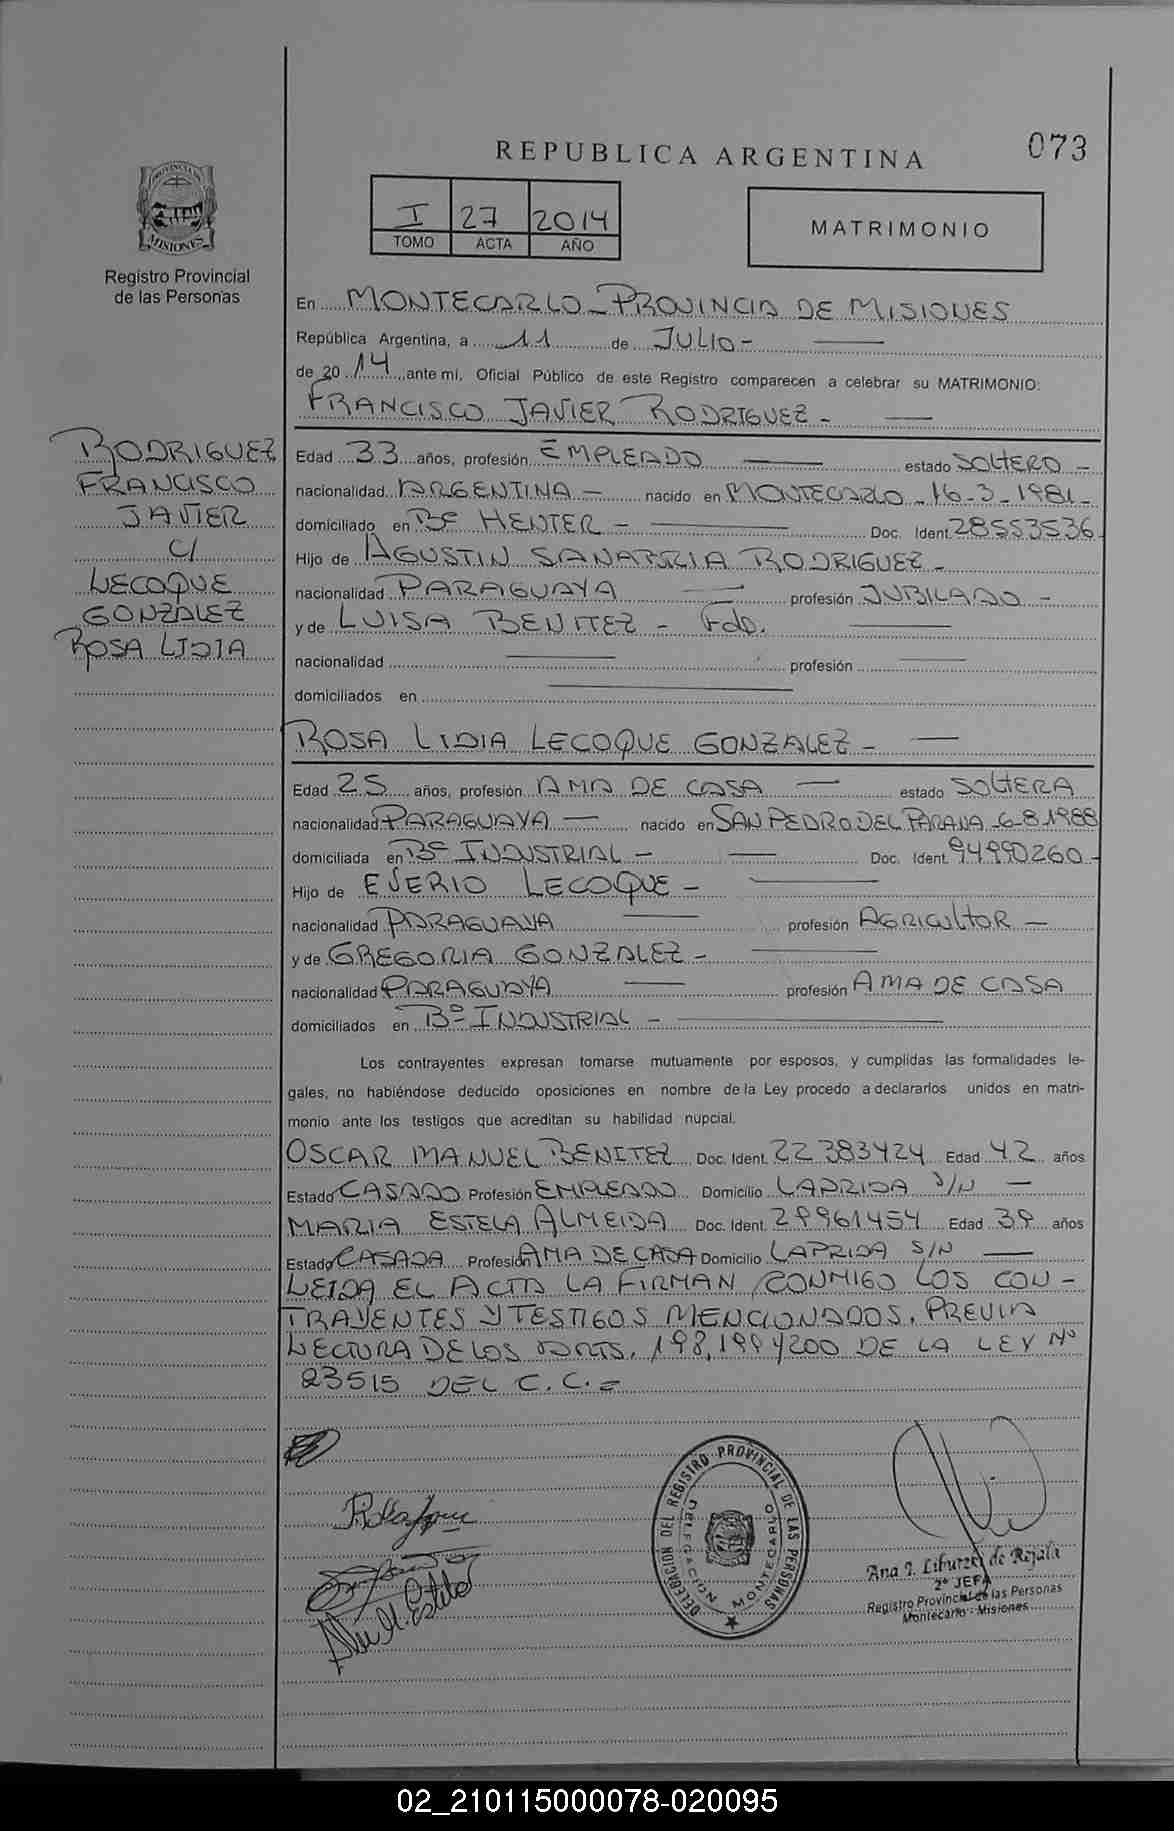 073
REPUBLICA ARGENTINA
I 27 2014
TOMO ACTA AÑO
MATRIMONIO
PROVINCIA DE MISIONES
Registro Provincial
de las Personas
RODRIGUEZ
FRANCISCO
JAVIER
C/
LECOQUE
GONZALEZ
ROSA LIDIA
En MONTECARLO - PROVINCIA DE MISIONES
República Argentina, a 11 de JULIO -
de 20 14 ante mi, Oficial Público de este Registro comparecen a celebrar su MATRIMONIO:
FRANCISCO JAVIER RODRIGUEZ -
Edad 33 años, profesión EMPLEADO estado SOLTERO -
nacionalidad ARGENTINA - nacido en MONTECARLO - 16-3-1981-
domiciliado en Bº HENTER - Doc. Ident. 28553536-
Hijo de AGUSTIN SANABRIA RODRIGUEZ -
nacionalidad PARAGUAYA - profesión JUBILADO -
y de LUISA BENITEZ - Fdo.
nacionalidad profesión
domiciliados en
ROSA LIDIA LECOQUE GONZALEZ -
Edad 25 años, profesión AMA DE CASA estado SOLTERA
nacionalidad PARAGUAYA - nacido en SAN PEDRO DEL PARANA 6-8-1988
domiciliada en Bº INDUSTRIAL - Doc. Ident. 94990260-
Hijo de EJERIO LECOQUE -
nacionalidad PARAGUAYA profesión AGRICULTOR -
y de GREGORIA GONZALEZ -
nacionalidad PARAGUAYA profesión AMA DE CASA
domiciliados en Bº INDUSTRIAL -
Los contrayentes expresan tomarse mutuamente por esposos, y cumplidas las formalidades le-
gales, no habiéndose deducido oposiciones en nombre de la Ley procedo a declararlos unidos en matri-
monio ante los testigos que acreditan su habilidad nupcial.
OSCAR MANUEL BENITEZ Doc. Ident. 22383424 Edad 42 años
Estado CASADO Profesión EMPLEADO Domicilio LAPRIDA S/N -
MARIA ESTELA ALMEIDA Doc. Ident. 29961454 Edad 39 años
Estado CASADA Profesión AMA DE CASA Domicilio LAPRIDA S/N
LEIDA EL ACTA LA FIRMAN CONMIGO LOS CON-
TRAYENTES Y TESTIGOS MENCIONADOS, PREVIA
LECTURA DE LOS ARTS. 198, 199 Y 200 DE LA LEY Nº
23515 DEL C.C.=
DELEGACION DEL REGISTRO PROVINCIAL DE LAS PERSONAS
DELEGACION MONTECARLO
Ana I. Liburzei de Rejala
2º JEFA
Registro Provincial de las Personas
Montecarlo - Misiones
02_210115000078-020095